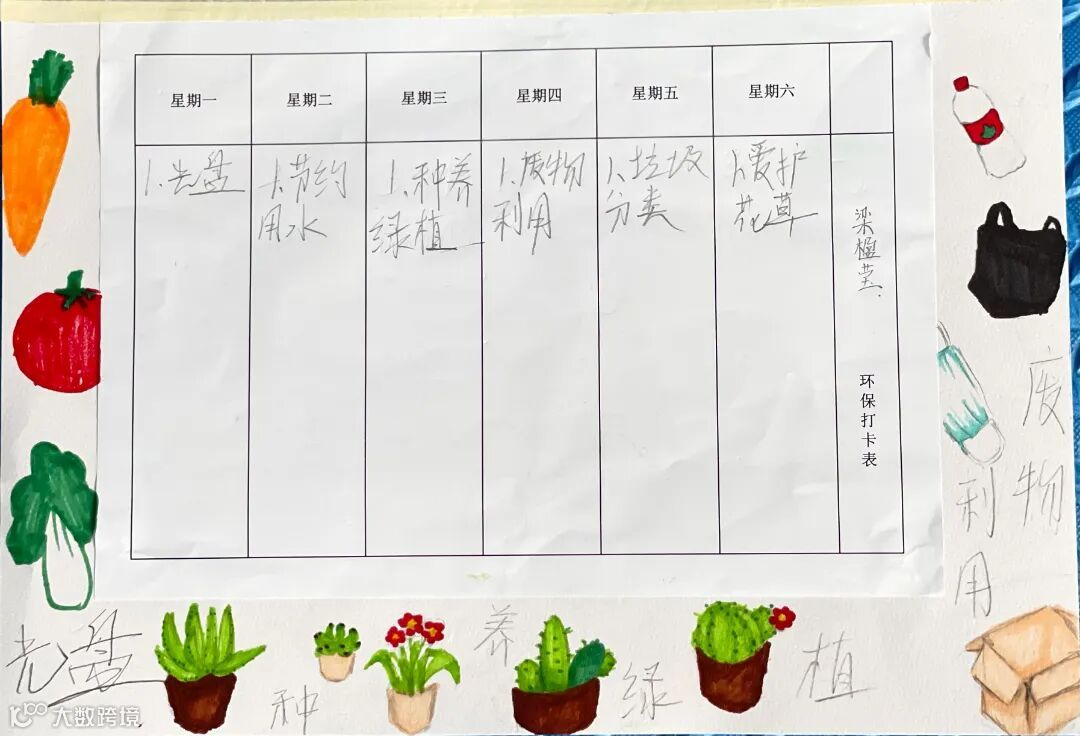 星期一
星期二
星期三
星期四
星期五
星期六
1.光盘
1.节约
用水
1.种养
绿植
1.废物
利用
1.垃圾
分类
1.爱护
花草
梁楹
环保打卡表
废物
利用
光盘
种养绿植
大数跨境